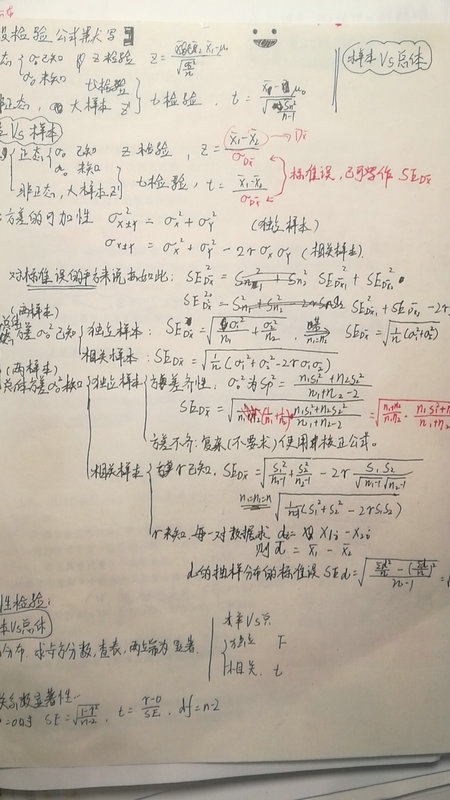 检验 公式
态 { σ₀²已知 z检验 z = (x̄₁-μ₀)/√(σ₀²/n)
σ₀ 未知 t检验
非正态, 大样本 z' } t检验, t = (x̄₁-μ₀)/√(Sn²/(n-1))
样本Vs总体
Vs 样本
正态 { σ₀ 已知 z检验, z = (x̄₁-x̄₂)/σDx̄ → Dx̄
σ₀ 未知
非正态, 大样本z' } t检验, t = (x̄₁-x̄₂)/σDx̄
标准误, 也可写作 SEDx̄
方差的可加性 σ²x±y = σx² + σy² (独立样本)
σx±y = σx² + σy² - 2rσxσy (相关样本)
对标准误的平方来说也如此: SE²Dx̄ = SE²Dx̄₁ + SE²Dx̄₂
SE²Dx̄ = SE²Dx̄₁ + SE²Dx̄₂ - 2r
(两样本)
方差σ₀²已知 { 独立样本: SEDx̄ = √(σ₁²/n₁ + σ₂²/n₂) n₁=n₂ ⇒ SEDx̄ = √(1/n(σ₁²+σ₂²))
相关样本: SEDx̄ = √(1/n(σ₁²+σ₂²-2rσ₁σ₂))
(两样本)
总体方差σ₀²未知 { 独立样本 { 方差齐性: σ₀²为Sp² = (n₁S₁²+n₂S₂²)/(n₁+n₂-2)
SEDx̄ = √((1/n₁+1/n₂)·(n₁S₁²+n₂S₂²)/(n₁+n₂-2)) = √((n₁+n₂)/(n₁n₂)·(n₁S₁²+n
方差不齐: 复杂(不要求)使用校正公式。
相关样本 { r已知, SEDx̄ = √(S₁²/(n₁-1) + S₂²/(n₂-1) - 2r S₁S₂/(√(n₁-1)√(n₂-1)))
n₁=n₂=n √(1/(n-1)(S₁²+S₂²-2rS₁S₂))
r未知, 每一对数据求 di = X₁i - X₂i
则 d̄ = x̄₁ - x̄₂
d的抽样分布的标准误 SEd̄ = √((Σd²/n - (Σd/n)²)/(n-1)) =
性检验:
本Vs总体
分布, 求百分数, 查表, 两端为显著.
样Vs总
{ 独立 F
相关. t
关系数显著性..
ρ=0时 SE = √((1-r²)/(n-2)), t = (r-0)/SE, df = n-2